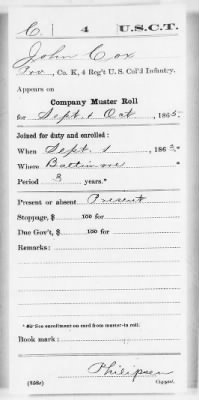 C | 4 | U.S.C.T.
John Cox
Pvt, Co. K, 4 Reg't U. S. Col'd Infantry.
Appears on
Company Muster Roll
for Sept & Oct, 1865.
Joined for duty and enrolled:
When Sept 1, 1863*
Where Baltimore *
Period 3 years.*
Present or absent Present
Stoppage, $ 100 for
Due Gov't, $ 100 for
Remarks:
* See enrollment on card from muster-in roll.
Book mark:
(358c) Copyist.